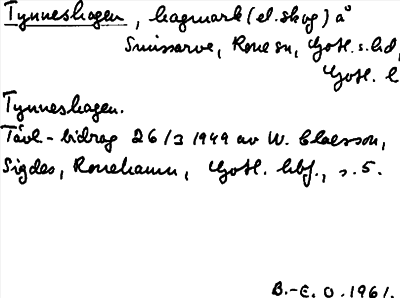 Tynneshagen, hagmark (el. skog) å
Smissarve, Rone sn, Gotl. s. hd,
Gotl. l
Tynneshagen.
Tävl-bidrag 26/3 1949 av W. Claesson,
Sigdes, Ronehamn, Gotl. hbf., s. 5.
B.-E. O. 1961.